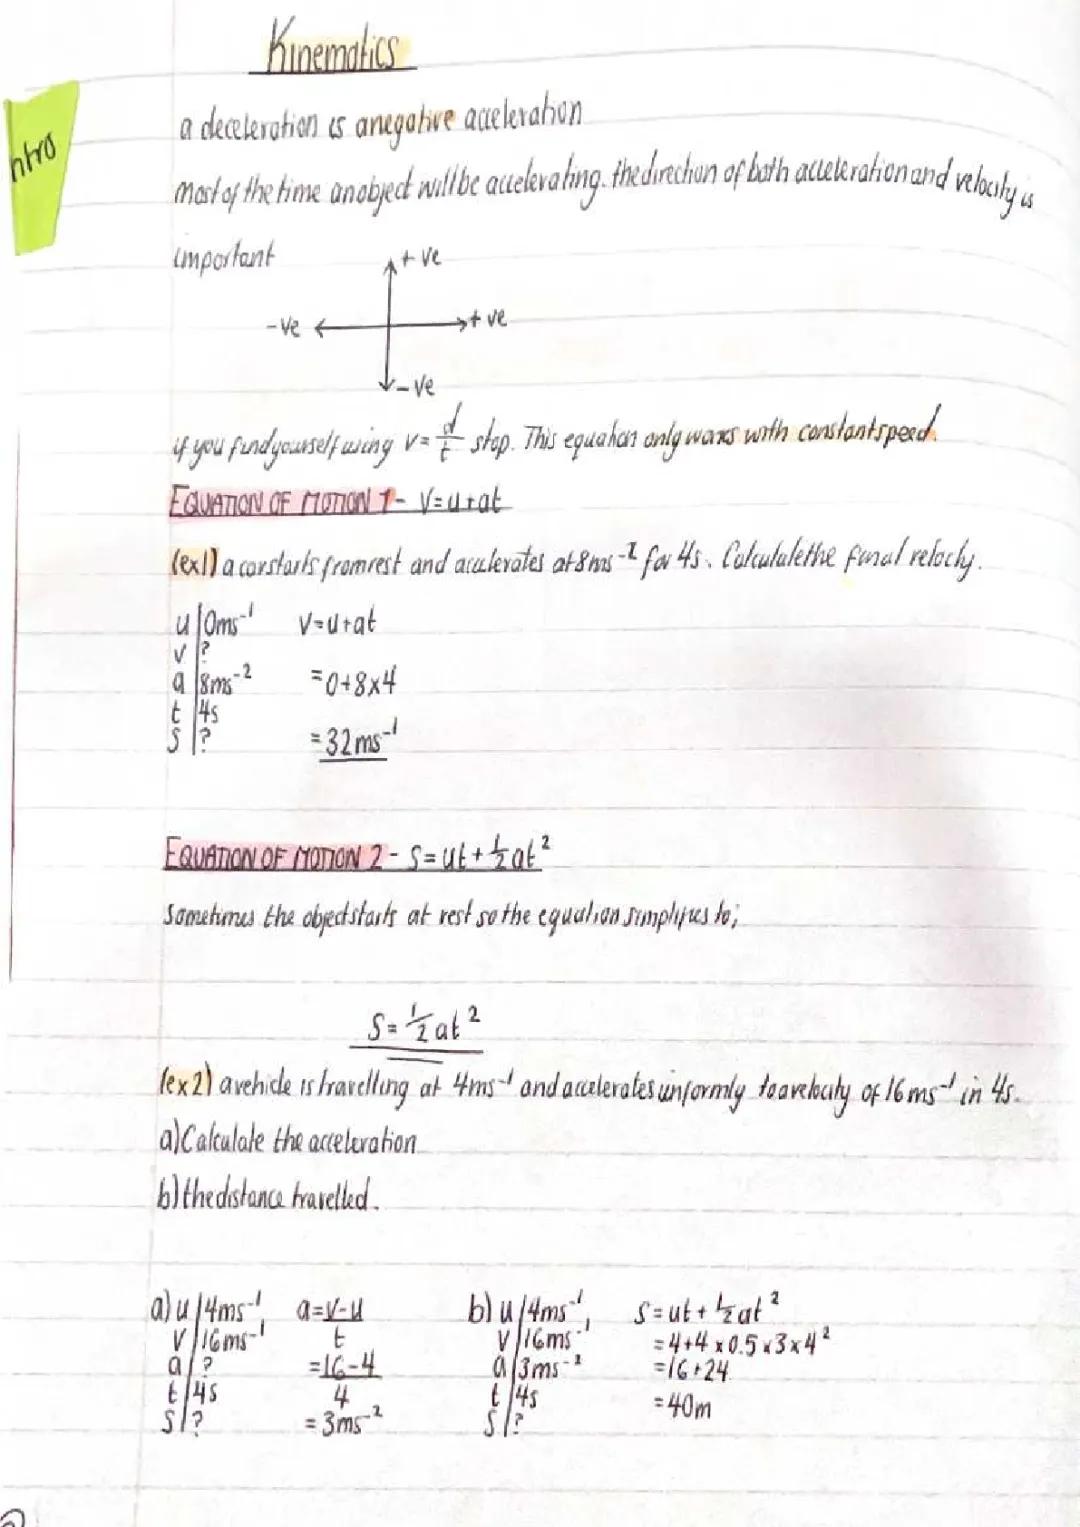 Kinematics
ntro
a deceleration is a negative acceleration
most of the time an object will be accelerating. the direction of both acceleration and velocity is
important
+ve
-ve
+ve
-ve
if you find yourself using v = d/t stop. This equation only works with constant speed.
EQUATION OF MOTION 1 - V=u+at
(ex1) a car starts from rest and accelerates at 8ms⁻² for 4s. Calculate the final velocity.
u | 0ms⁻¹ V=u+at
v | ?
a | 8ms⁻² =0+8x4
t | 4s
S | ? =32ms⁻¹
EQUATION OF MOTION 2 - S=ut+½at²
Sometimes the object starts at rest so the equation simplifies to;
S=½at²
(ex2) a vehicle is travelling at 4ms⁻¹ and accelerates uniformly to a velocity of 16ms⁻¹ in 4s.
a) Calculate the acceleration
b) the distance travelled.
a) u | 4ms⁻¹, a=v-u
V | 16ms⁻¹ t
a | ? =16-4
t | 4s 4
S | ? =3ms⁻²
b) u | 4ms⁻¹, S=ut+½at²
V | 16ms⁻¹ =4+4x0.5x3x4²
a | 3ms⁻² =16+24
t | 4s =40m
S | ?